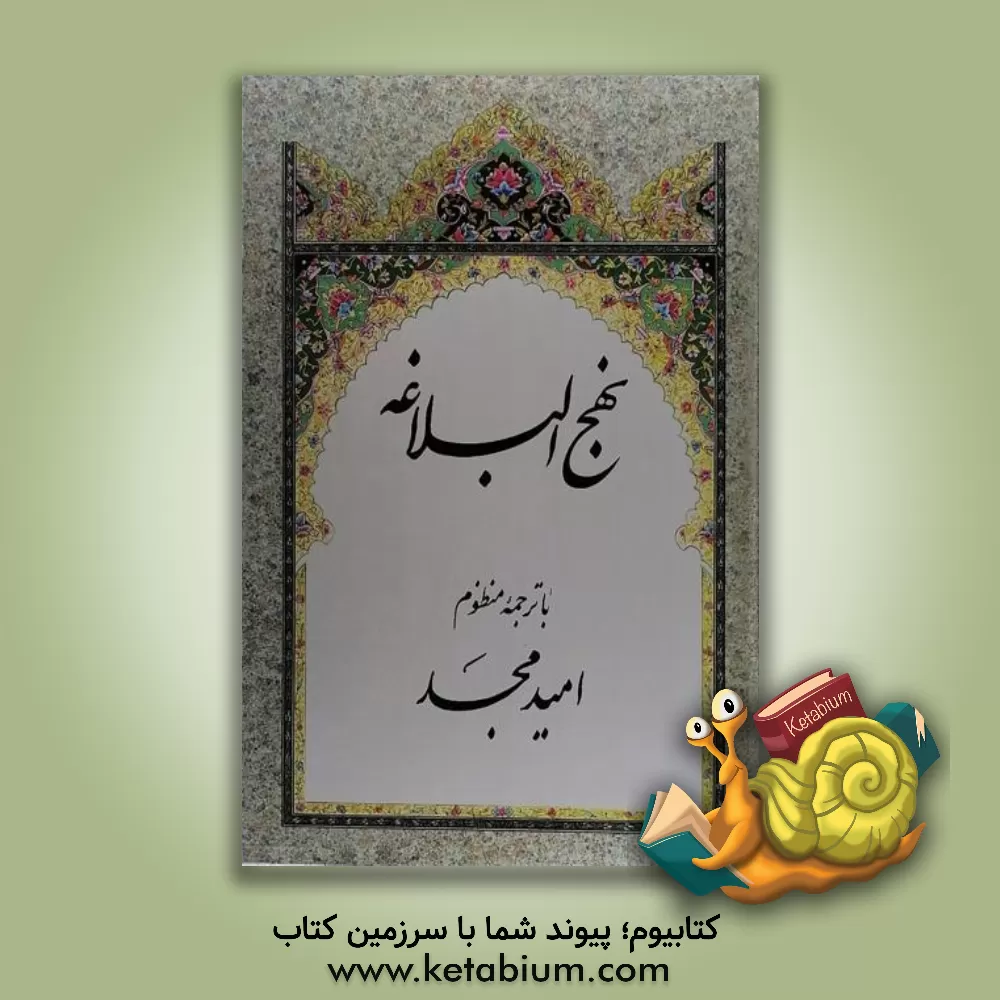 نهج البلاغه
با ترجمهٔ منظوم
امید مجد
Ketabium
کتابیوم؛ پیوند شما با سرزمین کتاب
www.ketabium.com